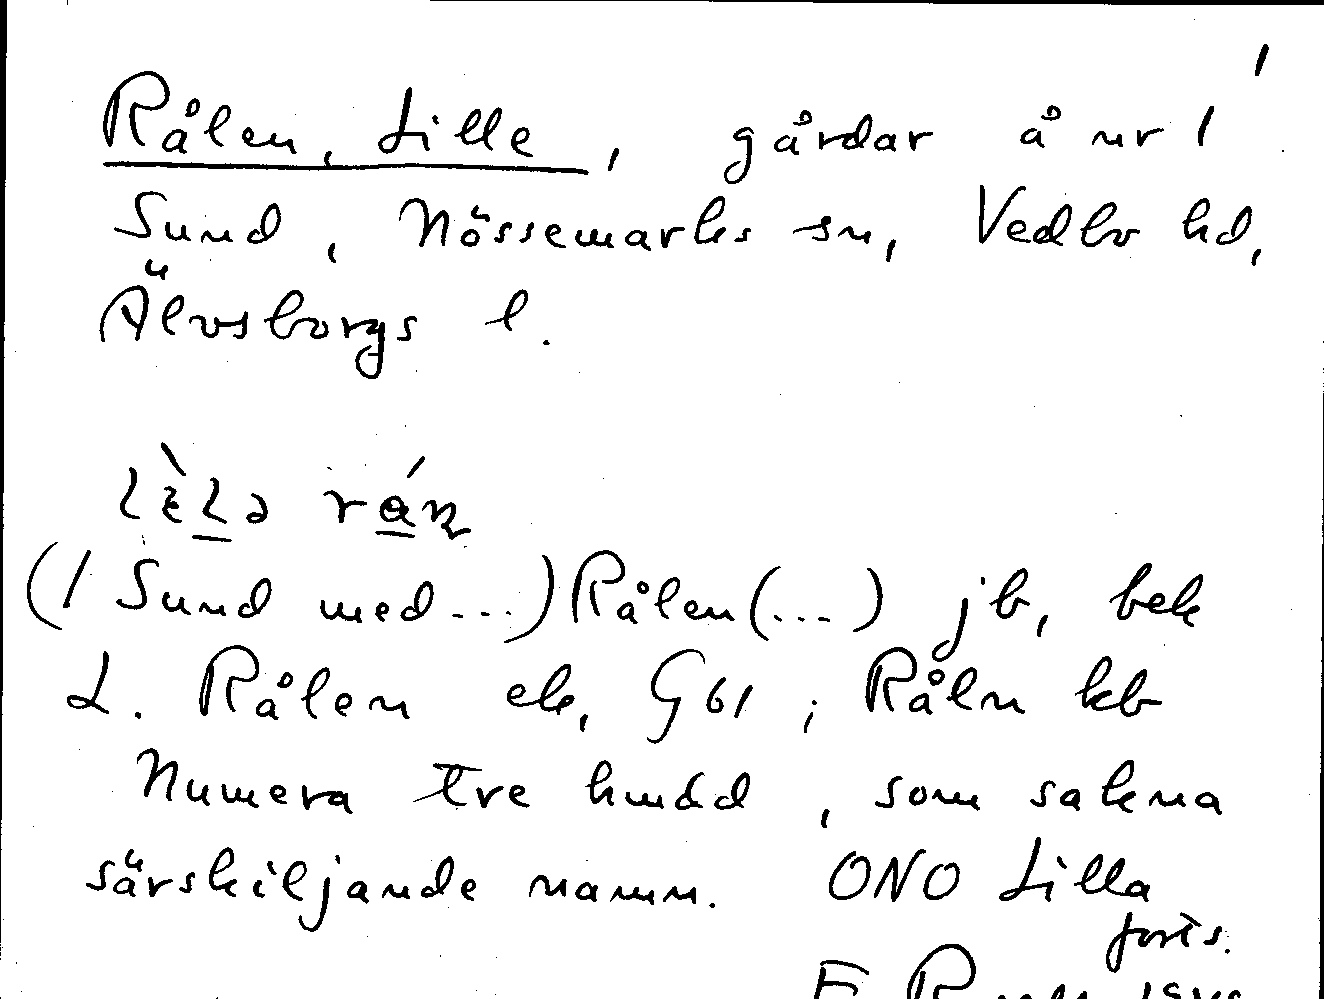 1
Rålen, Lille, gårdar å nr 1
Sund, Nössemarks sn, Vedbo hd,
Älvsborgs l.
(1 Sund med...) Rålen (...) jb, bek
L. Rålen ek, G61; Råln kb
Numera tre hmdd, som sakna
särskiljande namn. ONO Lilla
forts.